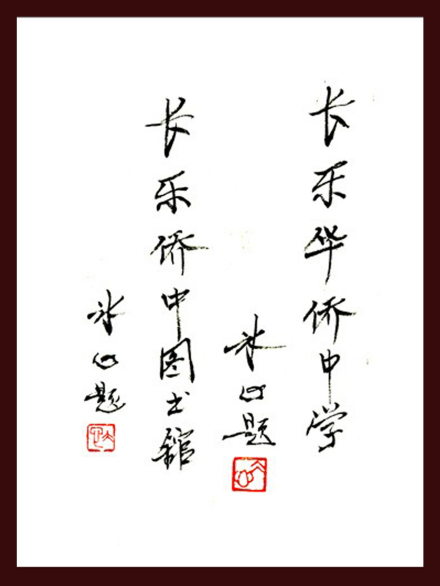 长乐华侨中学
冰心题
长乐侨中图书馆
冰心题